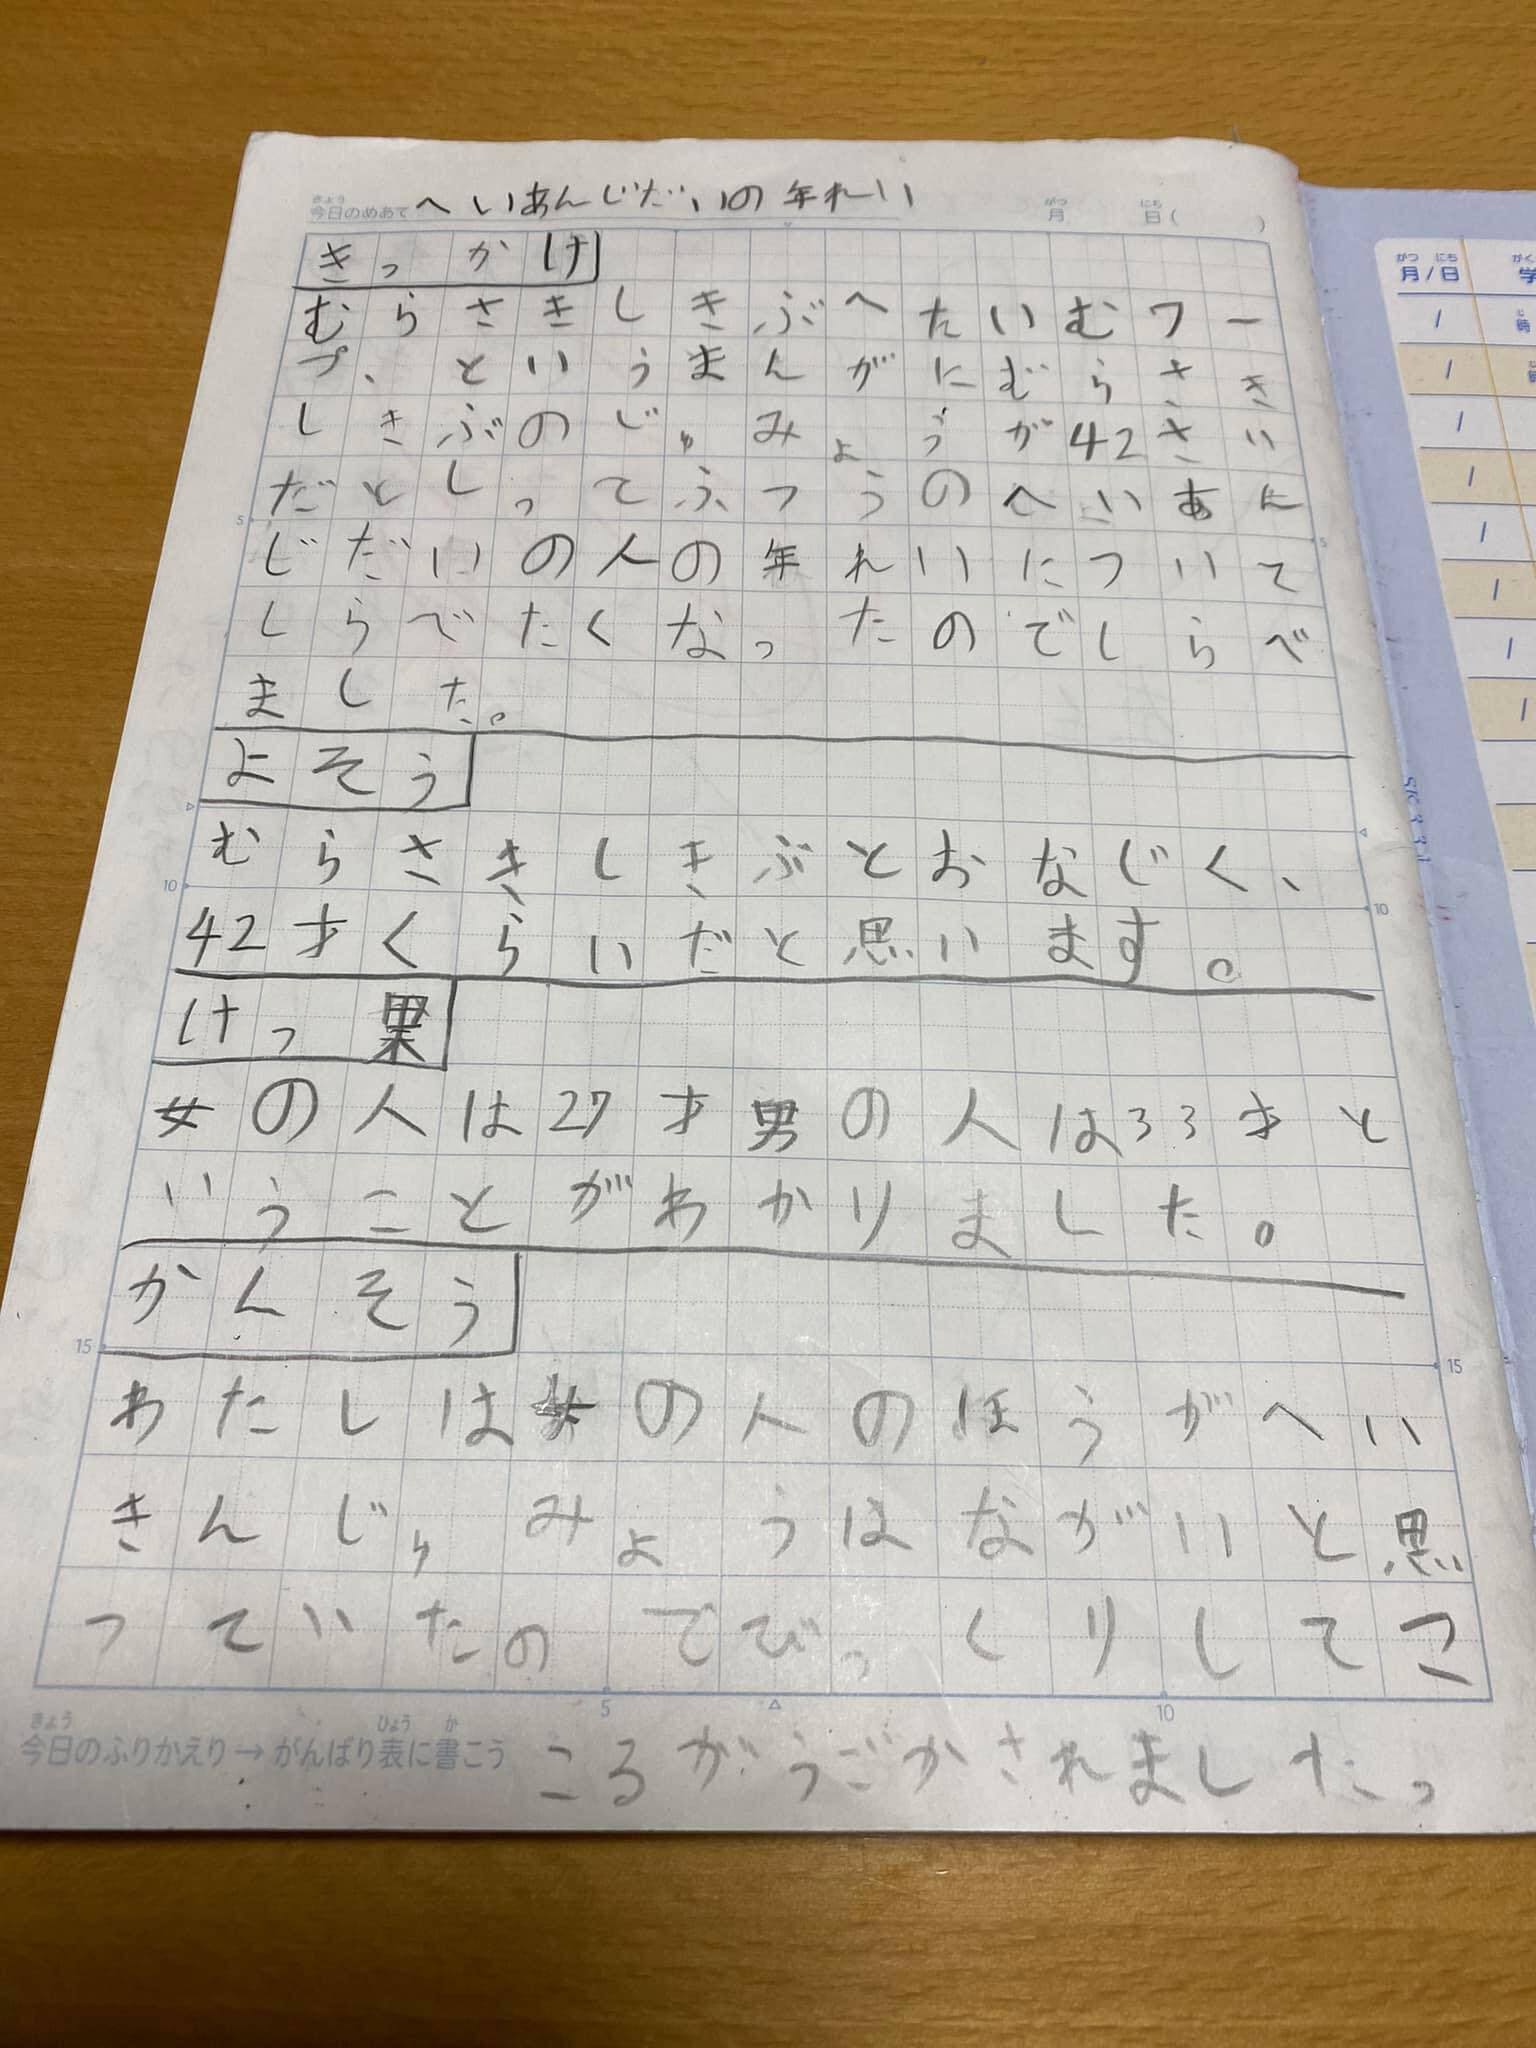 きょう
今日のめあて へいあんじだいの年れい
がつ にち
月 日( )
きっかけ
むらさきしきぶへたいむワー
プ、というまんがにむらさき
しきぶのじゅみょうが42さい
だとしってふつうのへいあん
5 じだいの人の年れいについて 5
しらべたくなったのでしらべ
ました。
よそう
むらさきしきぶとおなじく、
10 42才くらいだと思います。 10
けっ果
女の人は27才男の人は33才と
いうことがわかりました。
かんそう
15 15
わたしは女の人のほうがへい
きんじゅみょうはながいと思
っていたのでびっくりしてこ
5 10
きょう ひょう か
今日のふりかえり→がんばり表に書こう
ころがうごかされました。
がつ にち がく
月/日 学
/ 時
/
/
/
/
/
/
/